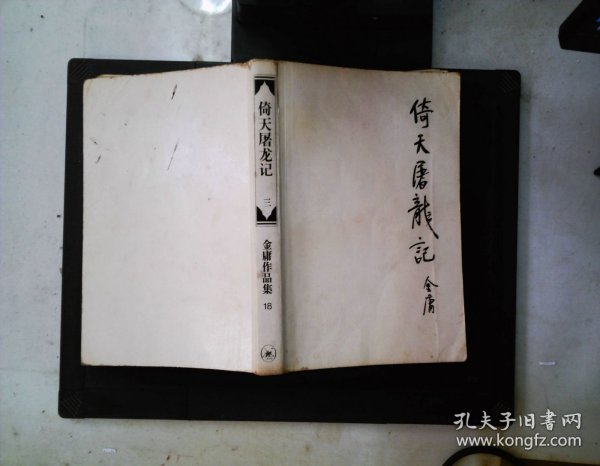 倚天屠龙记
三
金庸作品集
18
倚天屠龍記
金庸
孔夫子旧书网
www.kongfz.com